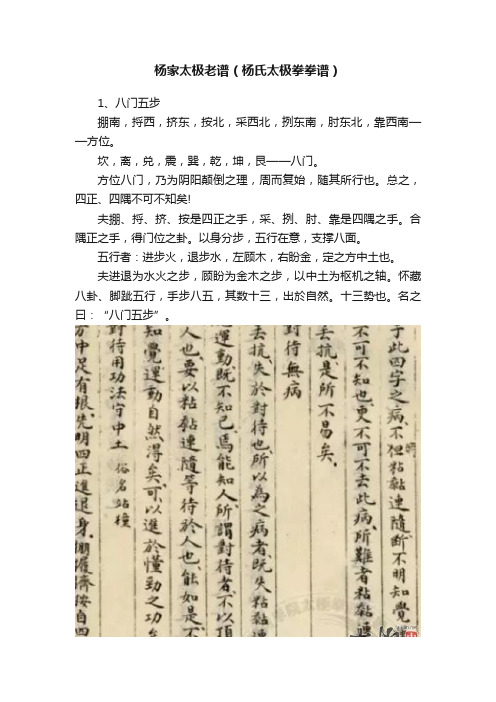 杨家太极老谱（杨氏太极拳拳谱）
1、八门五步
掤南，捋西，挤东，按北，采西北，挒东南，肘东北，靠西南—
—方位。
坎，离，兑，震，巽，乾，坤，艮——八门。
方位八门，乃为阴阳颠倒之理，周而复始，随其所行也。总之，
四正、四隅不可不知矣!
夫掤、捋、挤、按是四正之手，采、挒、肘、靠是四隅之手。合
隅正之手，得门位之卦。以身分步，五行在意，支撑八面。
五行者：进步火，退步水，左顾木，右盼金，定之方中土也。
夫进退为水火之步，顾盼为金木之步，以中土为枢机之轴。怀藏
八卦、脚跐五行，手步八五，其数十三，出於自然。十三势也。名之
曰：“八门五步”。
于此四字之病、不但粘黏連隨斷不明知覺
不可不知也、更不可不去此病、所難者粘黏連
丟抗、是所不易矣、
對待無病
丟抗、失於對待也、所以為之病者、既失粘黏連
運動、既不知己、焉能知人、所謂對待者、不以頂
人也、要以粘黏連隨等待於人也、能如是、不
知覺運動自然得矣、可以進於懂勁之功
對待用功法守中土 俗名站橦
方中足有根、先明四正進退身、掤履濟按自四